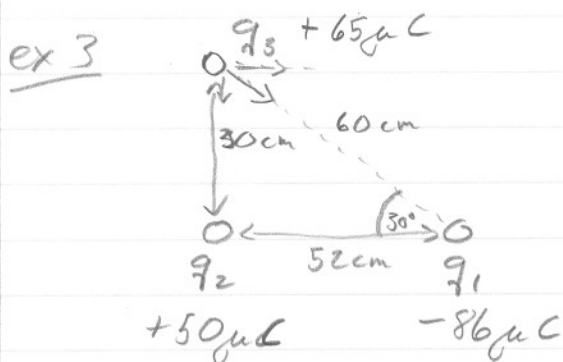 ex 3
q3 +65µC
30cm
60cm
30°
52cm
q2
q1
+50µC
-86µC